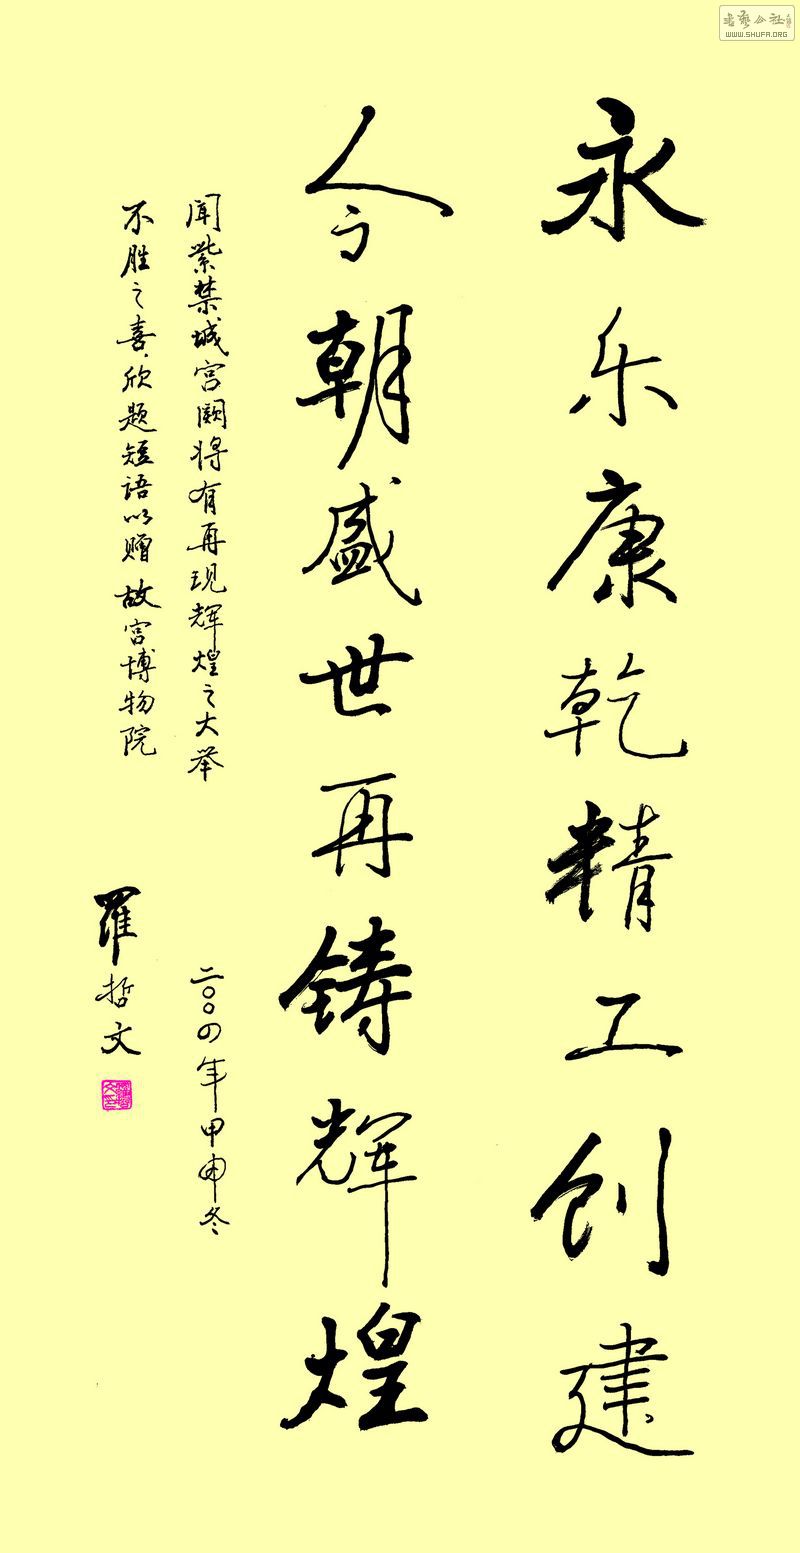 永乐康乾精工创建
今朝盛世再铸辉煌
闻紫禁城宫阙将有再现辉煌之大举
不胜之喜，欣题短语以赠故宫博物院
二〇〇四年甲申冬
羅哲文
WWW.SHUFA.ORG